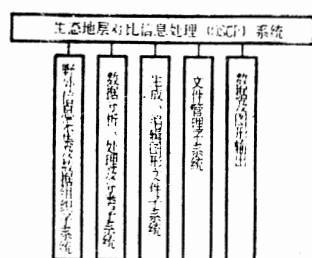 生态地层对比信息处理（ESCP）系统
野外信息采集及数据组织子系统
数据分析、处理及计算子系统
生成、编辑图形文件子系统
文件管理子系统
数据及图形输出